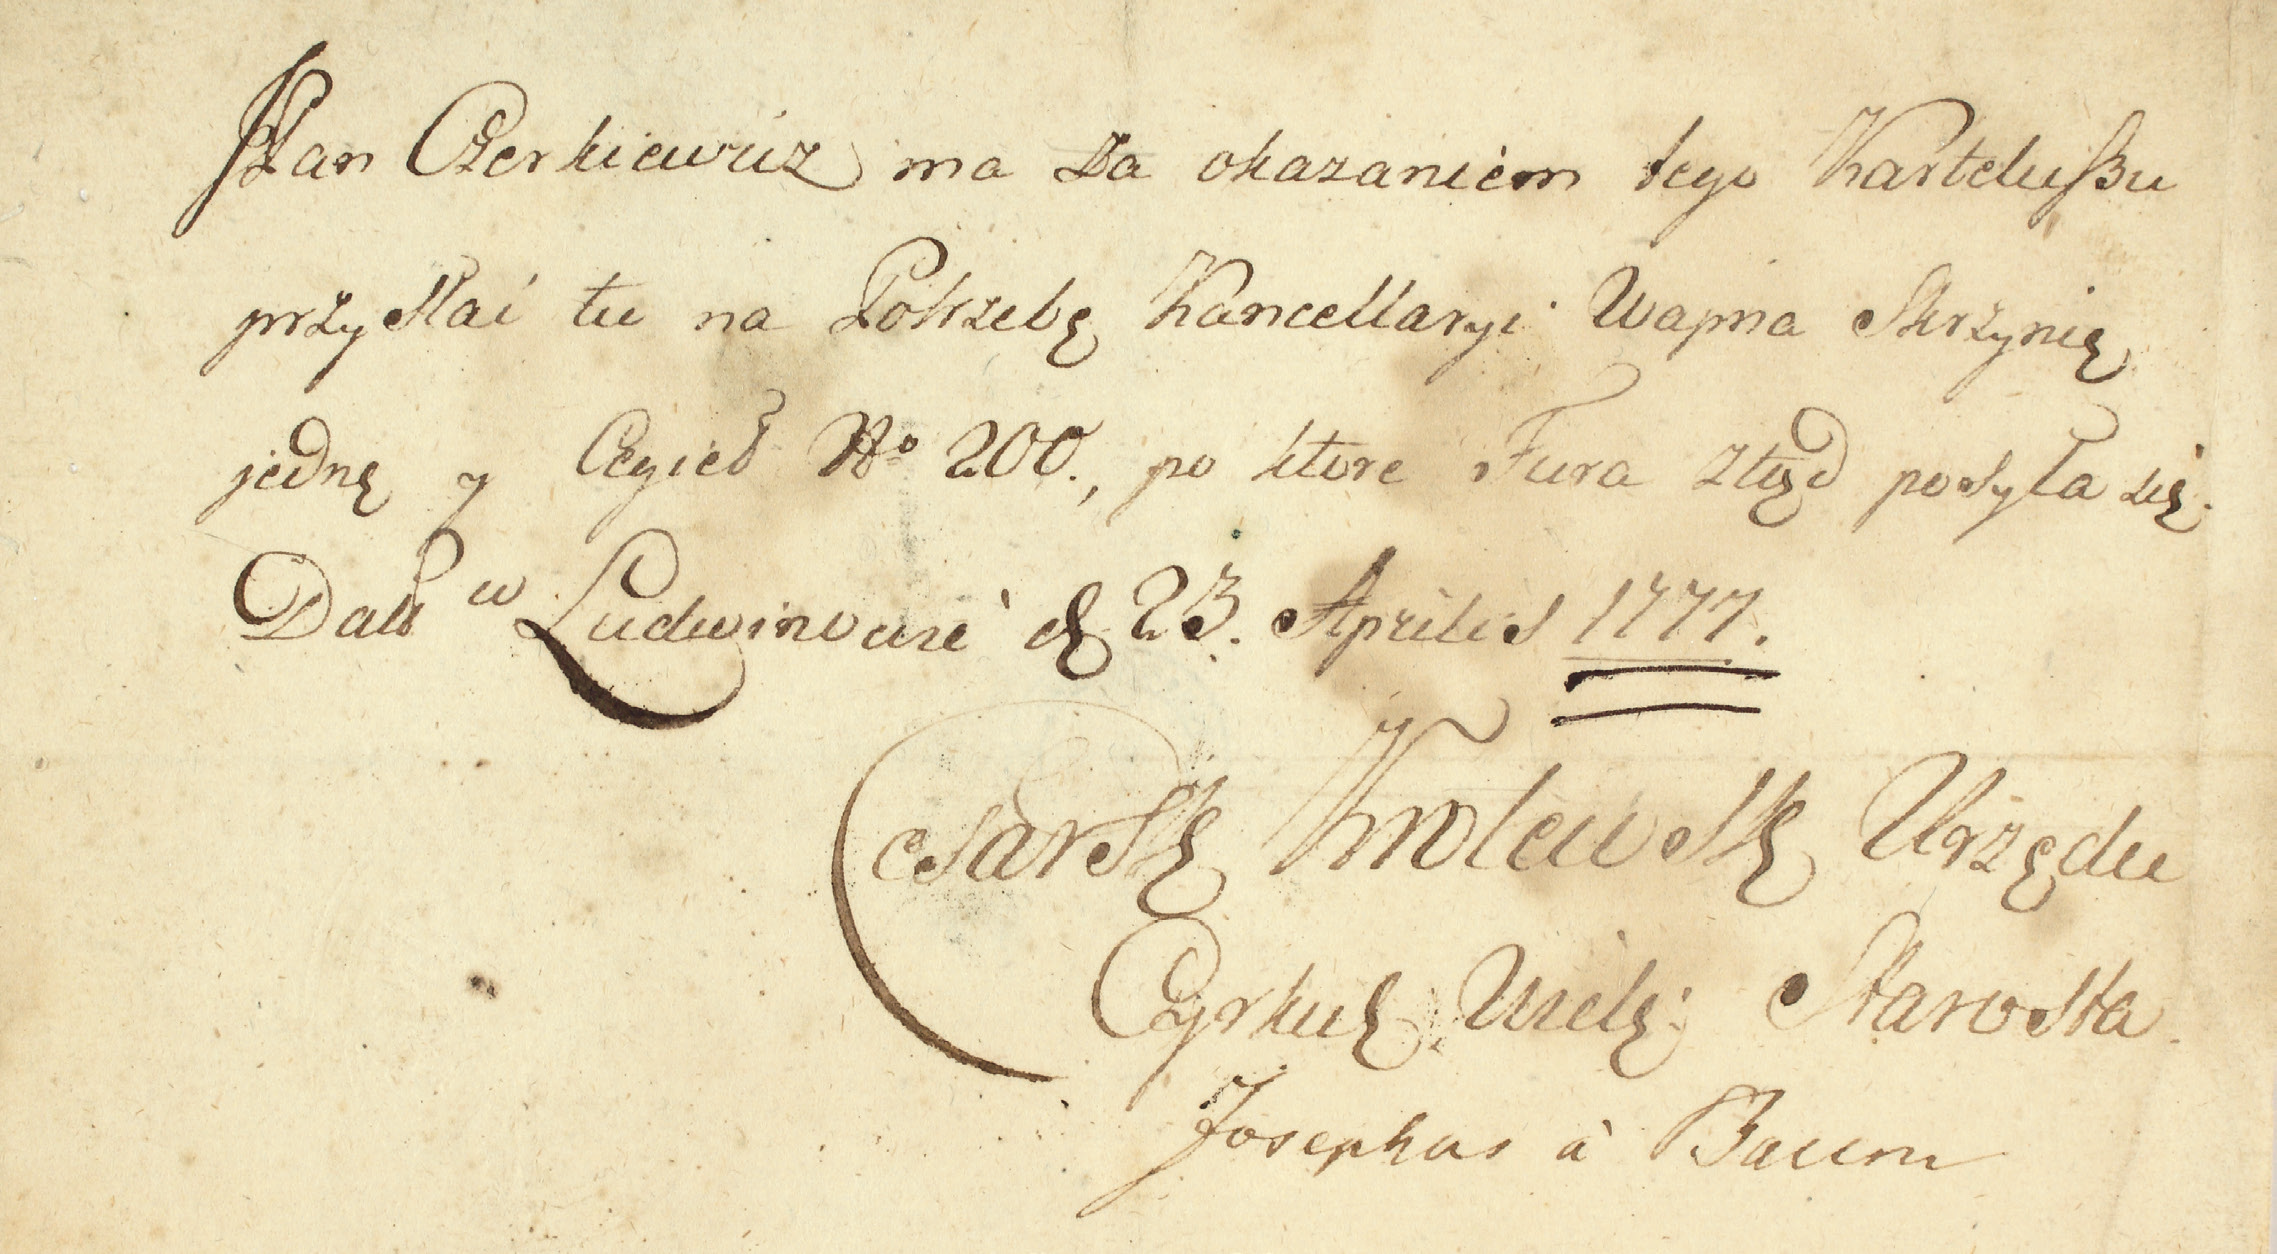 Pan Czerkiewicz ma za okazaniem tego Karteluszu
przysłać tu na Potrzebę Kancellaryi Wapna Skrzynię
jednę y Cegieł No 200., po ktore Fura ztąd posyła się.
Datt w Ludwinowie d 23. Aprilis 1777.
Csarsk Krolewsk Urzędu
Cyrkuł Wielg: Starosta
Josephus à Baum